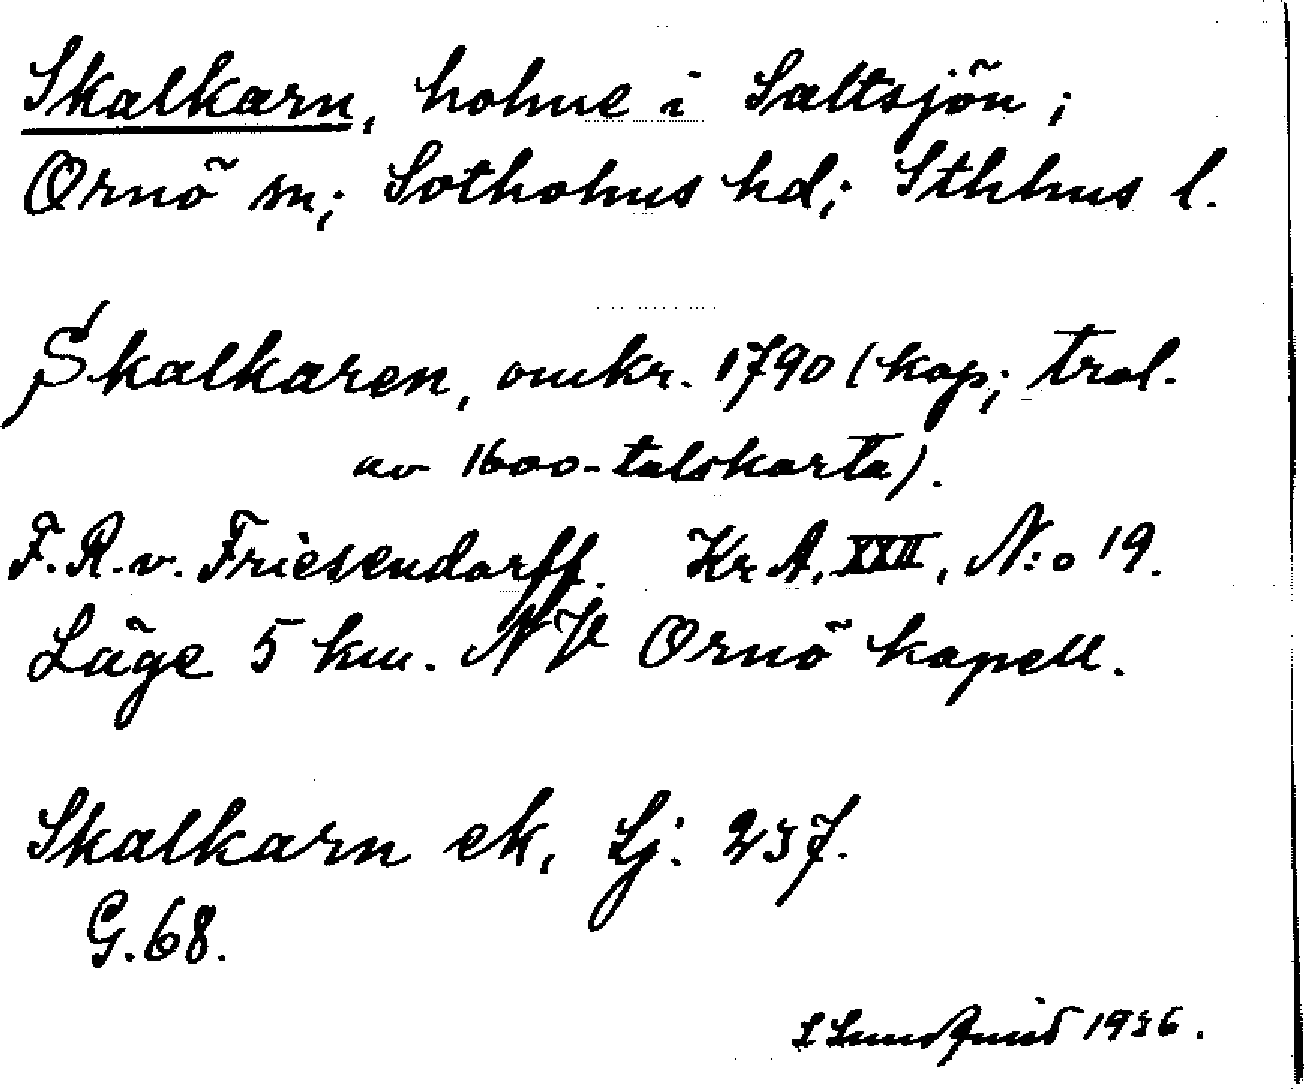 Skalkarn, holme i Saltsjön;
Ornö sn; Sotholms hd; Sthlms l.
Skalkaren, omkr. 1790 (kop; trol.
av 1600-talskarta).
F.R.v. Friesendorff. Kr A, XXII, N:o 19.
Läge 5 km. NV Ornö kapell.
Skalkarn ek, Lj: 237.
G. 68.
L Lundquist 1936.